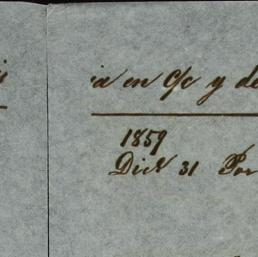 en C/c y de
1859
Dice 31 Por